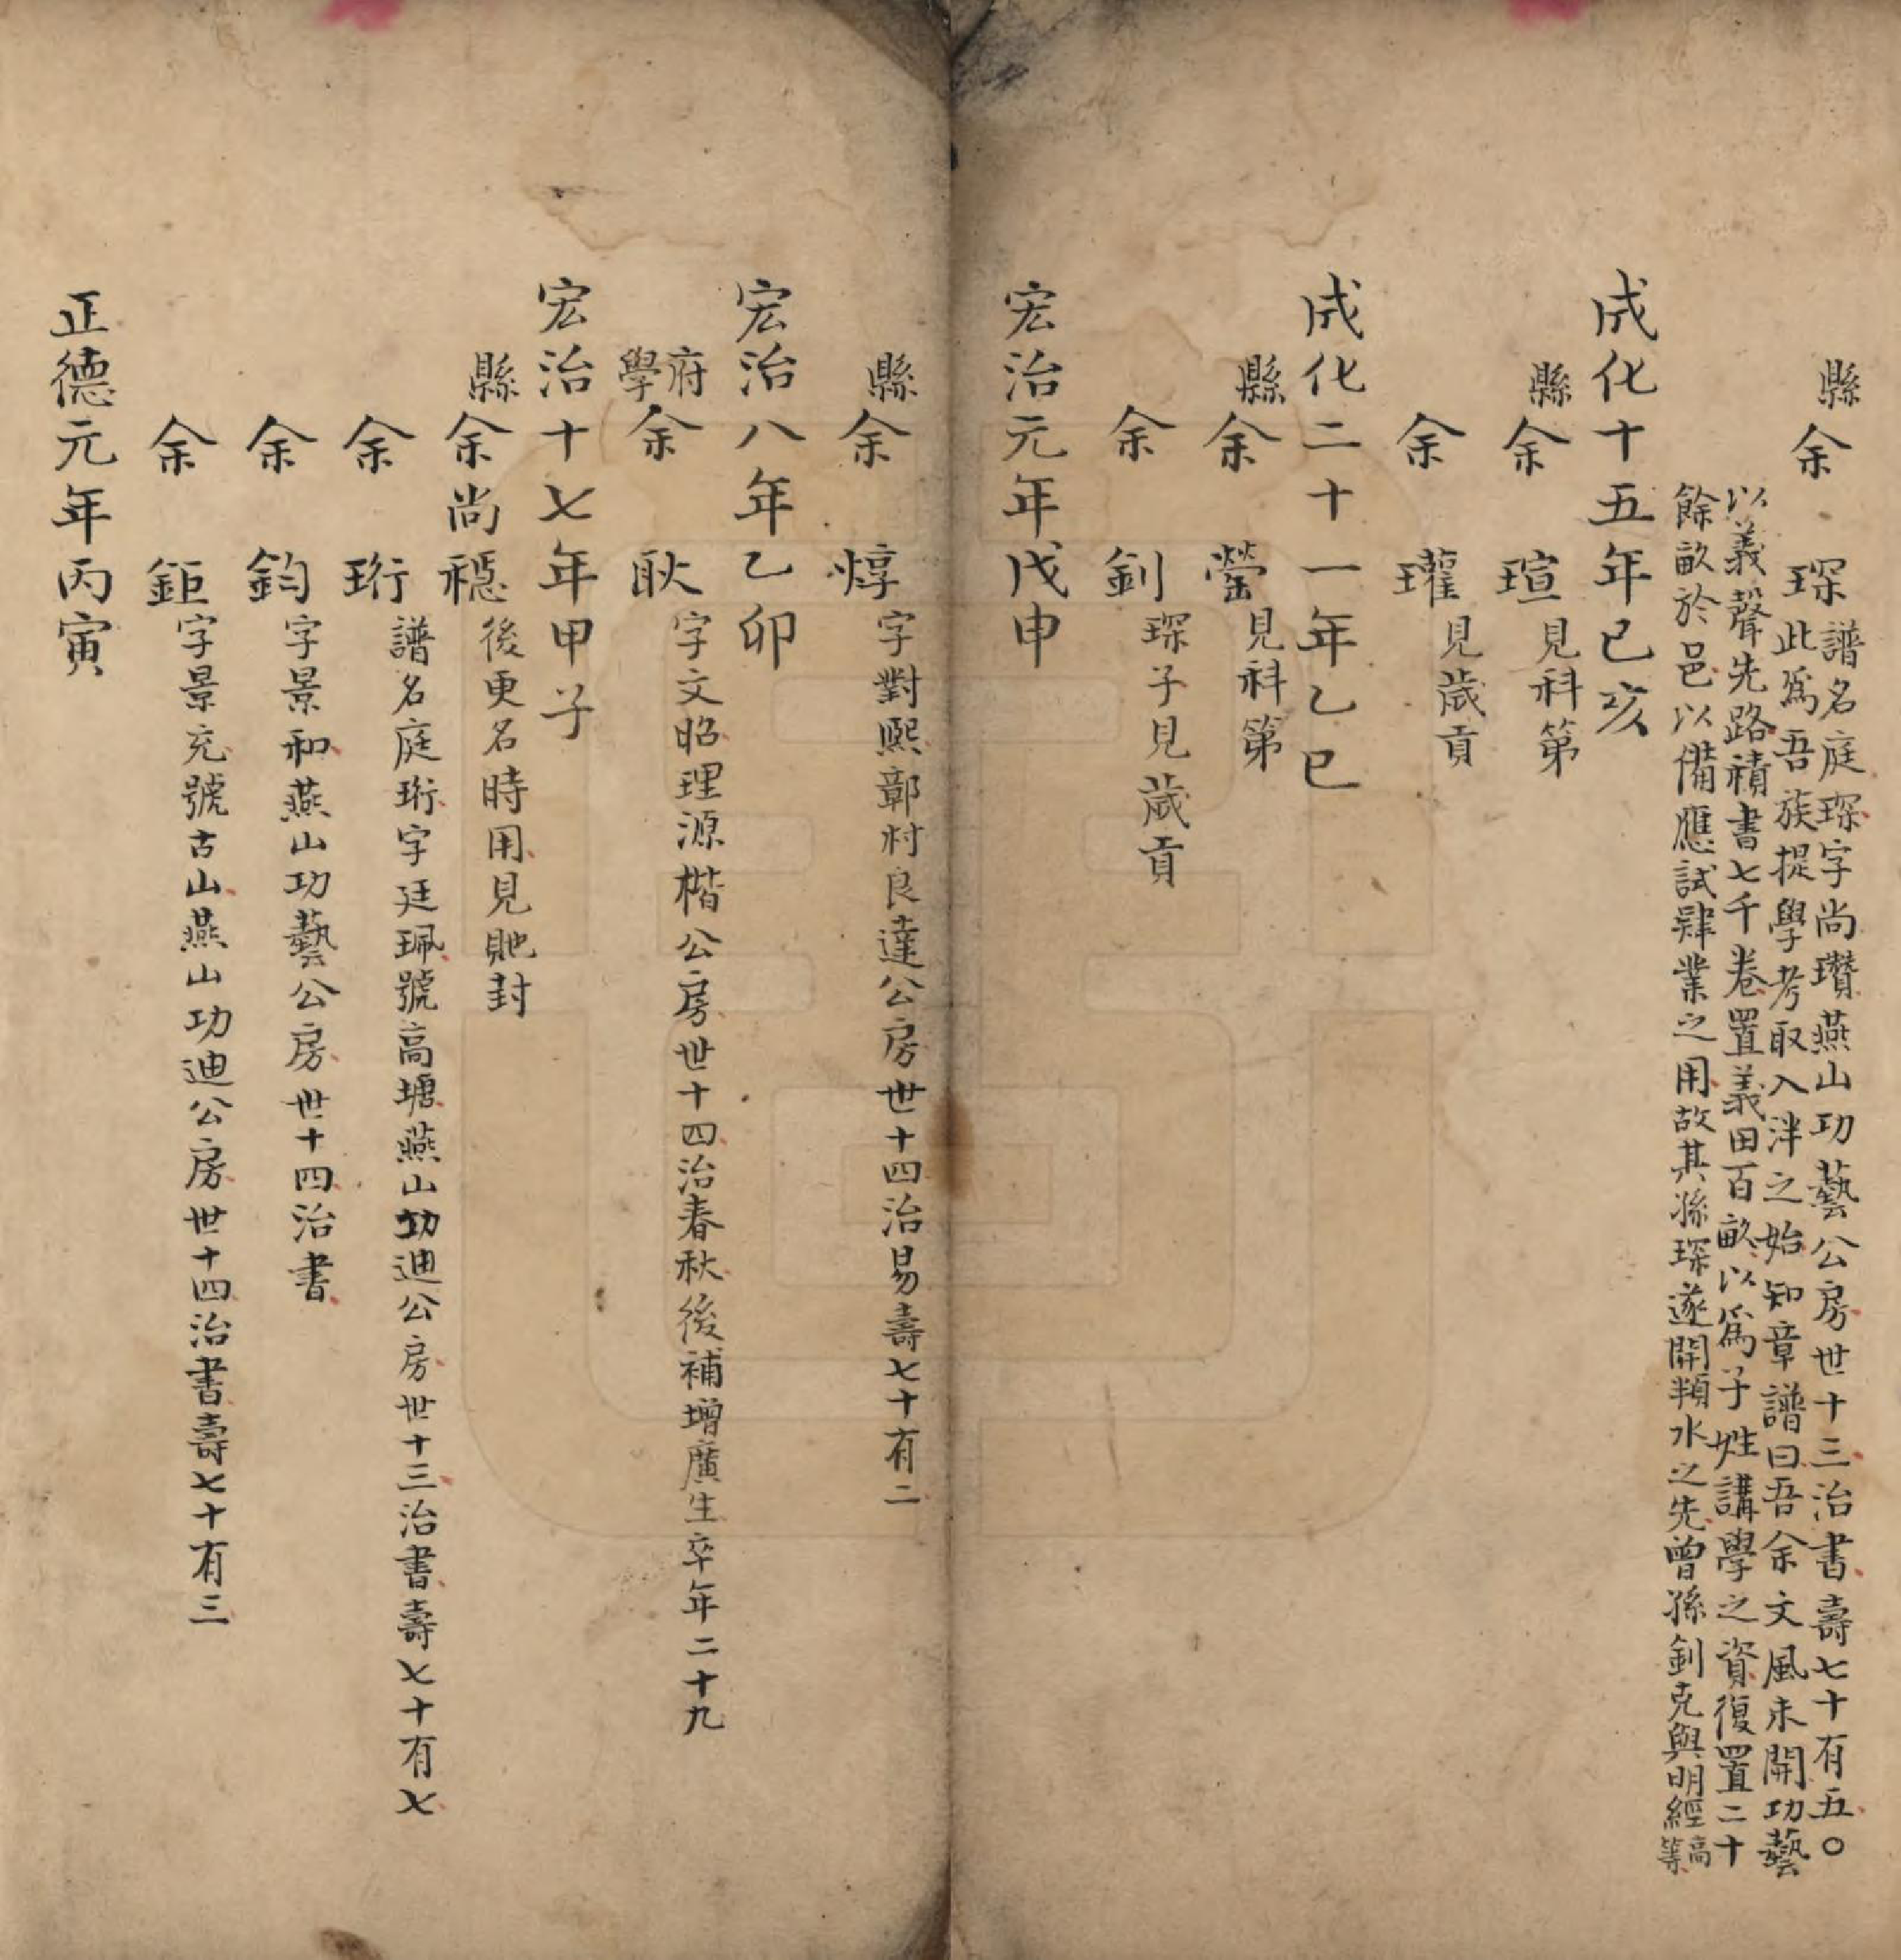 縣余　琛譜名庭琛字尚瓚燕山功藝公房世十三治書壽七十有五○
此爲吾族提學考取入泮之始知章譜曰吾余文風未開功藝
以義聲先路積書七千卷置義田百畝以爲子姓講學之資復置二十
餘畝於邑以備應試肄業之用故其孫琛遂開頖水之先曾孫釗克與明經高等
成化十五年己亥
縣余　瑄見科第
余　瓘見歲貢
成化二十一年乙巳
縣余　罃見科第
余　釗琛子見歲貢
宏治元年戊申
縣余　焞字對熙鄣村良達公房世十四治易壽七十有二
宏治八年乙卯
府學余　耿字文昭理源楷公房世十四治春秋後補增廣生卒年二十九
宏治十七年甲子
縣余尚穩後更名時用見貤封
余　珩譜名庭珩字廷珮號高塘燕山功迪公房世十三治書壽七十有七
余　鈞字景和燕山功藝公房世十四治書
余　鉅字景充號古山燕山功迪公房世十四治書壽七十有三
正德元年丙寅